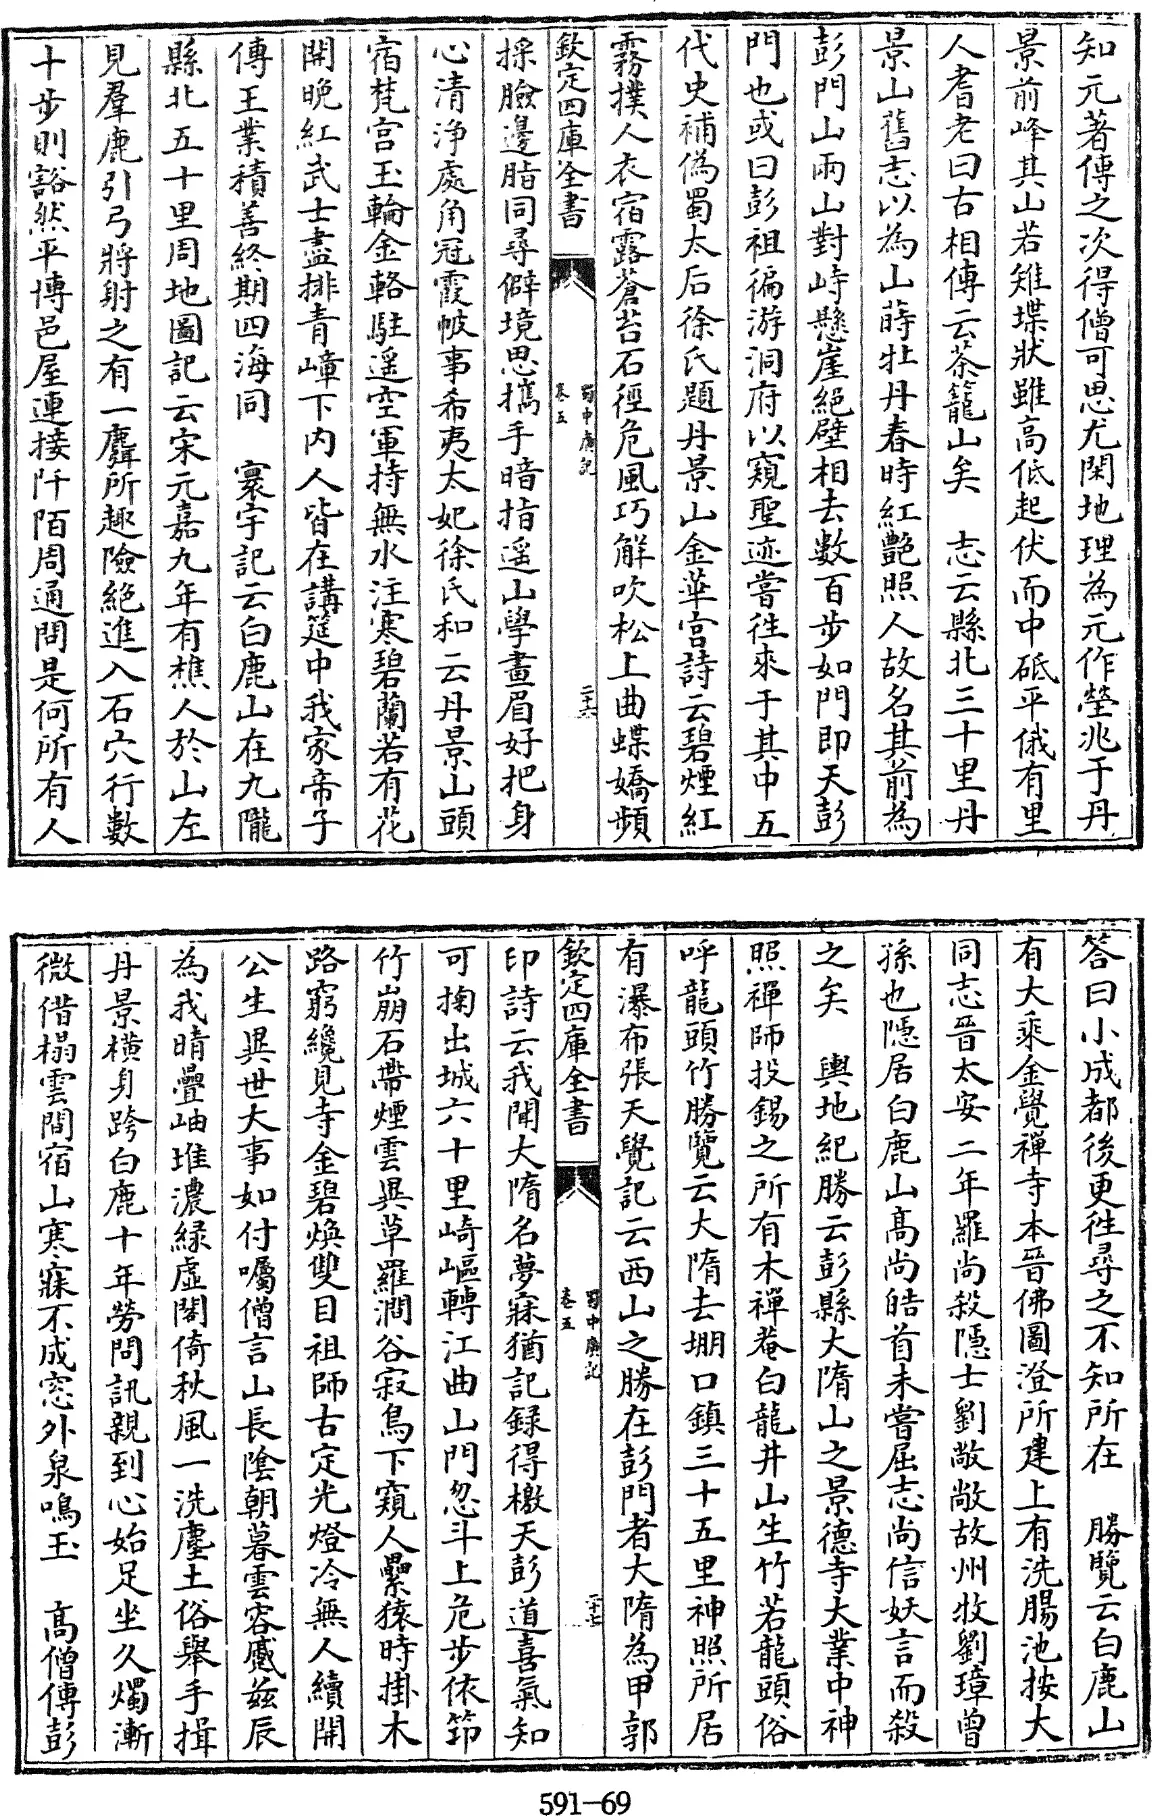 知元著傳之次得僧可思尤閑地理為元作塋兆于丹
景前峰其山若雉堞狀雖髙低起伏而中砥平俄有里
人耆老曰古相傳云茶籠山矣　志云縣北三十里丹
景山舊志以為山蒔牡丹春時紅艶照人故名其前為
彭門山兩山對峙懸崖絕壁相去數百步如門即天彭
門也或曰彭祖徧游洞府以窺聖迹嘗徃來于其中五
代史補偽蜀太后徐氏題丹景山金華宫詩云碧煙紅
霧撲人衣宿露蒼苔石徑危風巧解吹松上曲蝶嬌頻
欽定四庫全書
蜀中廣記
卷五
二十六
採臉邊脂同尋僻境思攜手暗指遥山學畫眉好把身
心清浄處角冠霞帔事希夷太妃徐氏和云丹景山頭
宿梵宫玉輪金輅駐遥空軍持無水注寒碧蘭若有花
開晚紅武士盡排青嶂下内人皆在講筵中我家帝子
傳王業積善終期四海同　寰宇記云白鹿山在九隴
縣北五十里周地圖記云宋元嘉九年有樵人於山左
見羣鹿引弓將射之有一麏所趣險絕進入石穴行數
十步則豁然平博邑屋連接阡陌周通問是何所有人
答曰小成都後更徃尋之不知所在　勝覽云白鹿山
有大乘金覺禪寺本晉佛圖澄所建上有洗腸池按大
同志晉太安二年羅尚殺隱士劉敞敞故州牧劉璋曽
孫也隱居白鹿山髙尚皓首未嘗屈志尚信妖言而殺
之矣　輿地紀勝云彭縣大隋山之景德寺大業中神
照禪師投錫之所有木禪菴白龍井山生竹若龍頭俗
呼龍頭竹勝覽云大隋去堋口鎮三十五里神照所居
有瀑布張天覺記云西山之勝在彭門者大隋為甲郭
欽定四庫全書
蜀中廣記
卷五
二十七
印詩云我聞大隋名夢寐猶記録得檄天彭道喜氣知
可掬出城六十里崎嶇轉江曲山門忽斗上危步依筇
竹崩石帶煙雲異草羅澗谷寂鳥下窺人纍猿時掛木
路窮纔見寺金碧煥雙目祖師古定光燈冷無人續開
公生異世大事如付囑僧言山長陰朝暮雲容蹙兹辰
為我晴疊岫堆濃緑虛閣倚秋風一洗塵土俗舉手揖
丹景横身跨白鹿十年勞問訊親到心始足坐久燭漸
微借榻雲間宿山寒寐不成窓外泉鳴玉　髙僧傳彭
591-69